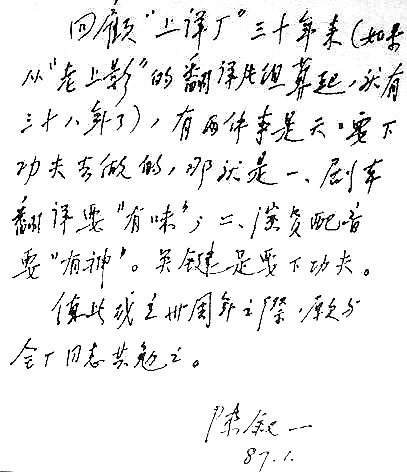 回顾“上译厂”三十年来（如果
从“老上影”的翻译片组算起，就有
三十八年了），有两件事是天天要下
功夫去做的，那就是一、剧本
翻译要“有味”；二、演员配音
要“有神”。关键是要下功夫。
值此成立卅周年之际，愿与
全厂同志共勉之。
陈叙一
87.1.